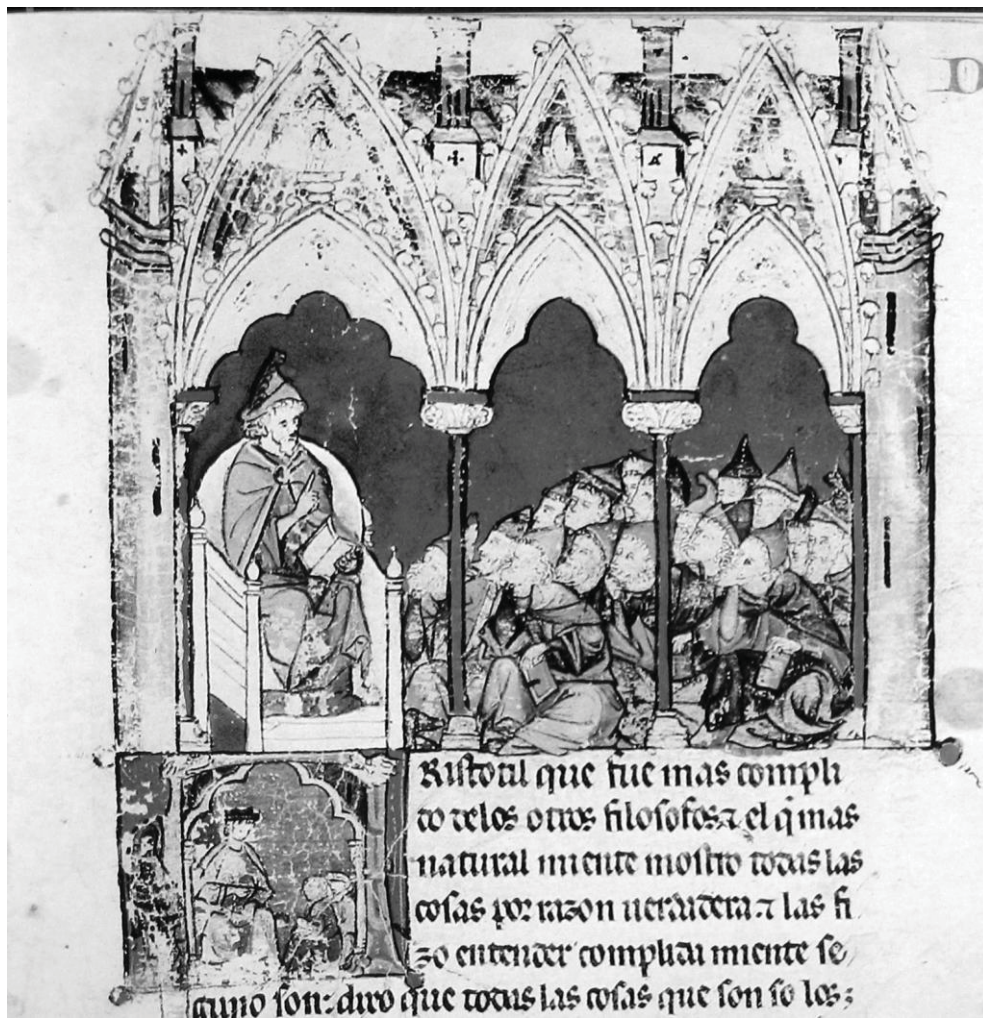 D
Ristotil que fue mas compli
do delos otros filosofos ⁊ el q̃ mas
natural miente mostro todas las
cosas por razon uerdadera ⁊ las fi
zo entender complida miente se
gund son: dixo que todas las cosas que son so los